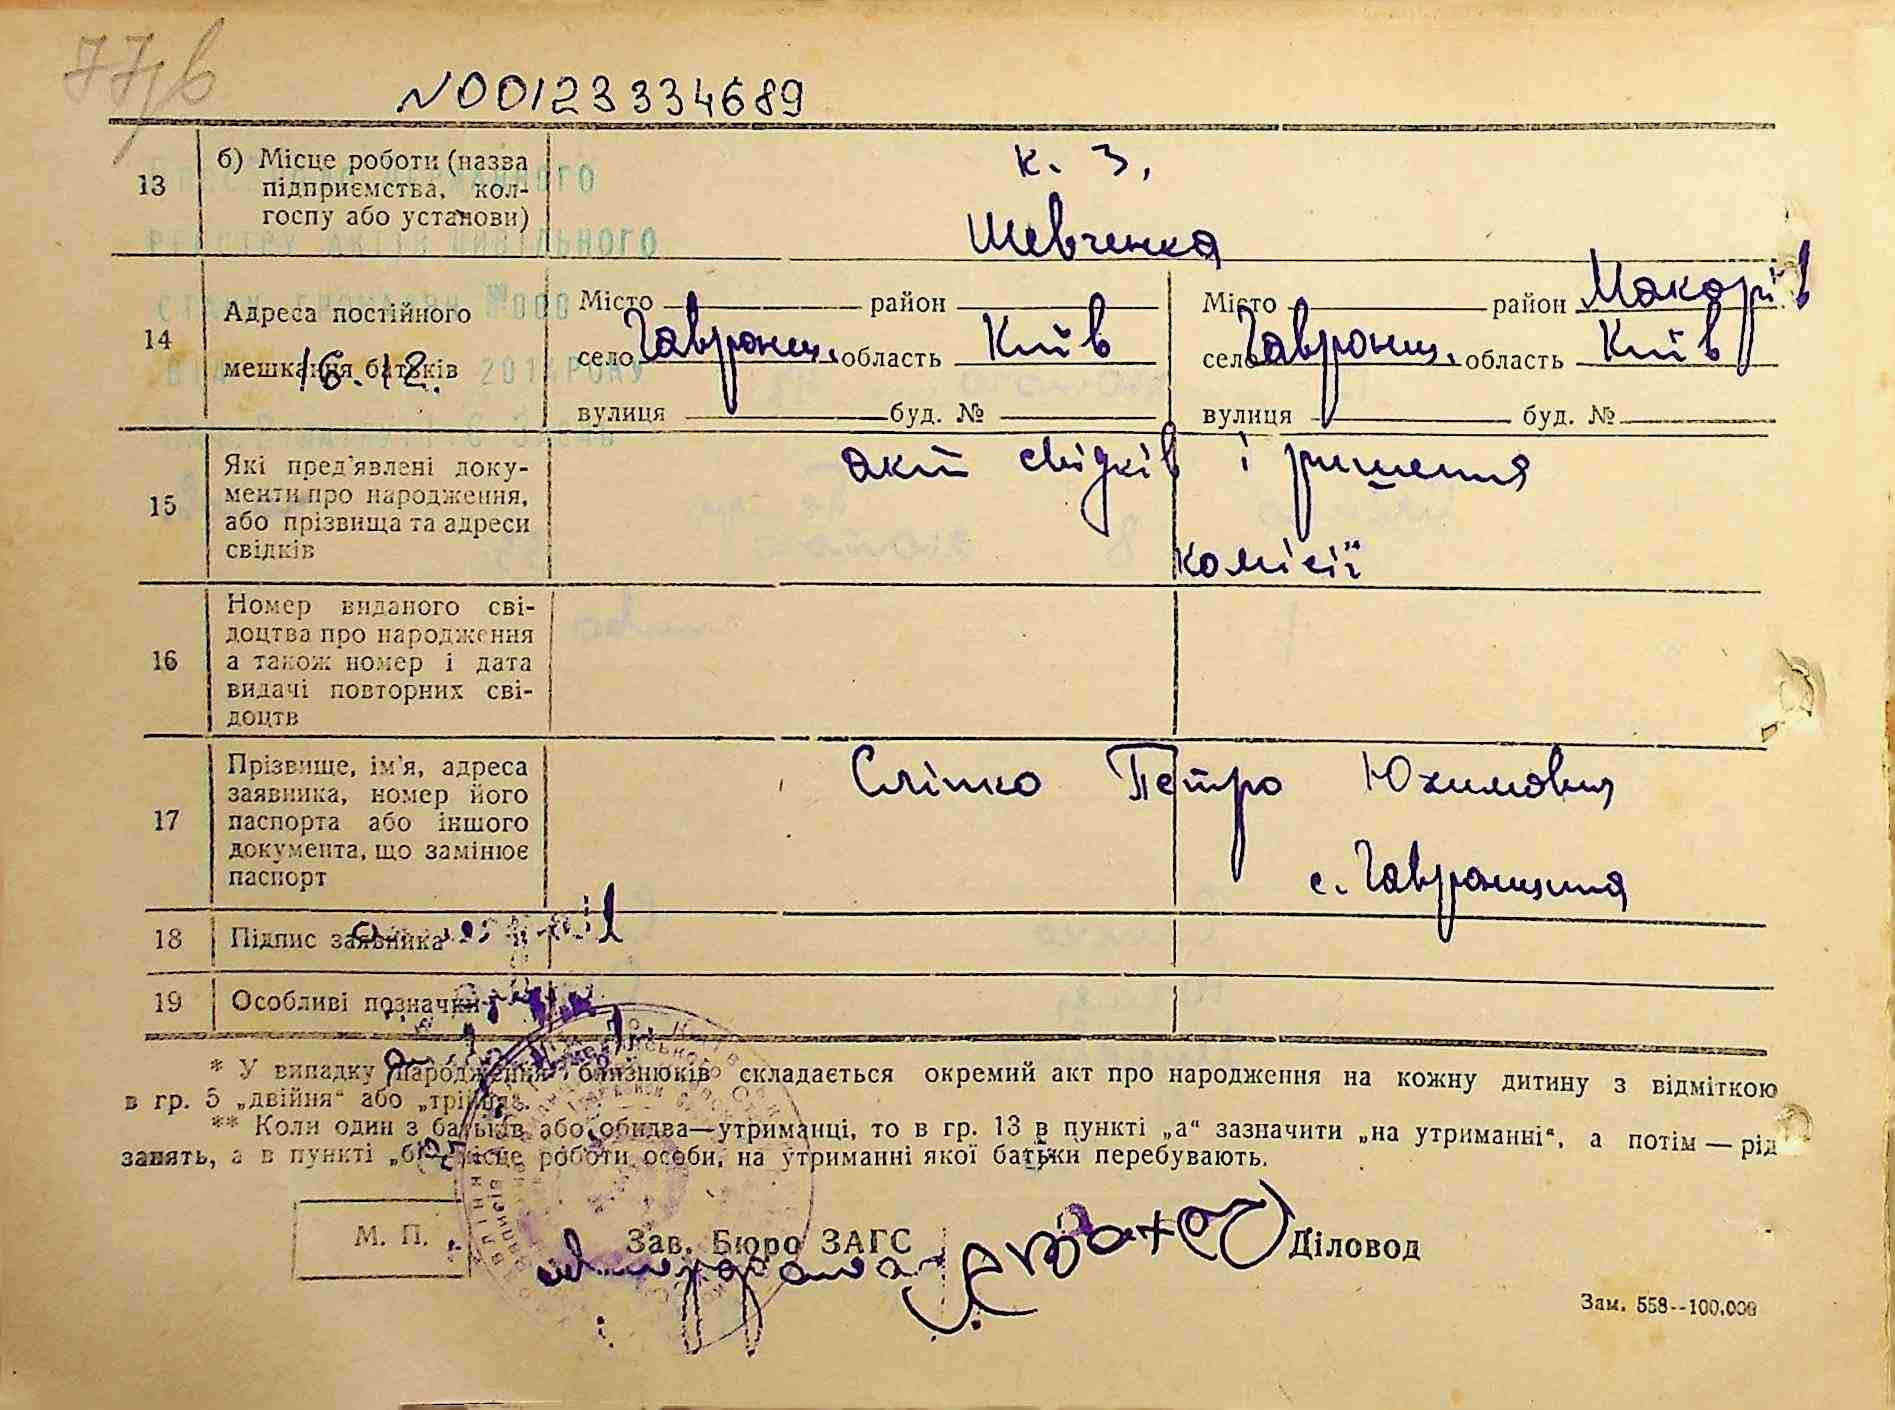 N00123334689
13
б) Місце роботи (назва
підприємства, кол-
госпу або установи)
к. з.
Шевченка
14
Адреса постійного
мешкання батьків
16.12.
Місто район
село Гавронщ. область Київ
вулиця буд. №
Місто район Макарів
село Гавронщ. область Київ
вулиця буд. №
15
Які пред'явлені доку-
менти про народження,
або прізвища та адреси
свідків
акт свідків і ришення
комісії
16
Номер виданого сві-
доцтва про народження
а також номер і дата
видачі повторних сві-
доцтв
17
Прізвище, ім'я, адреса
заявника, номер його
паспорта або іншого
документа, що замінює
паспорт
Сліпко Петро Юхимович
с. Гавронщина
18
Підпис заявника
19
Особливі позначки
* У випадку народження близнюків складається окремий акт про народження на кожну дитину з відміткою
в гр. 5 „двійня“ або „трійня“.
** Коли один з батьків або обидва—утриманці, то в гр. 13 в пункті „а“ зазначити „на утриманні“, а потім — рід
занять, а в пункті „б“ місце роботи особи, на утриманні якої батьки перебувають.
М. П.
Зав. Бюро ЗАГС
Діловод
Зам. 558--100.000